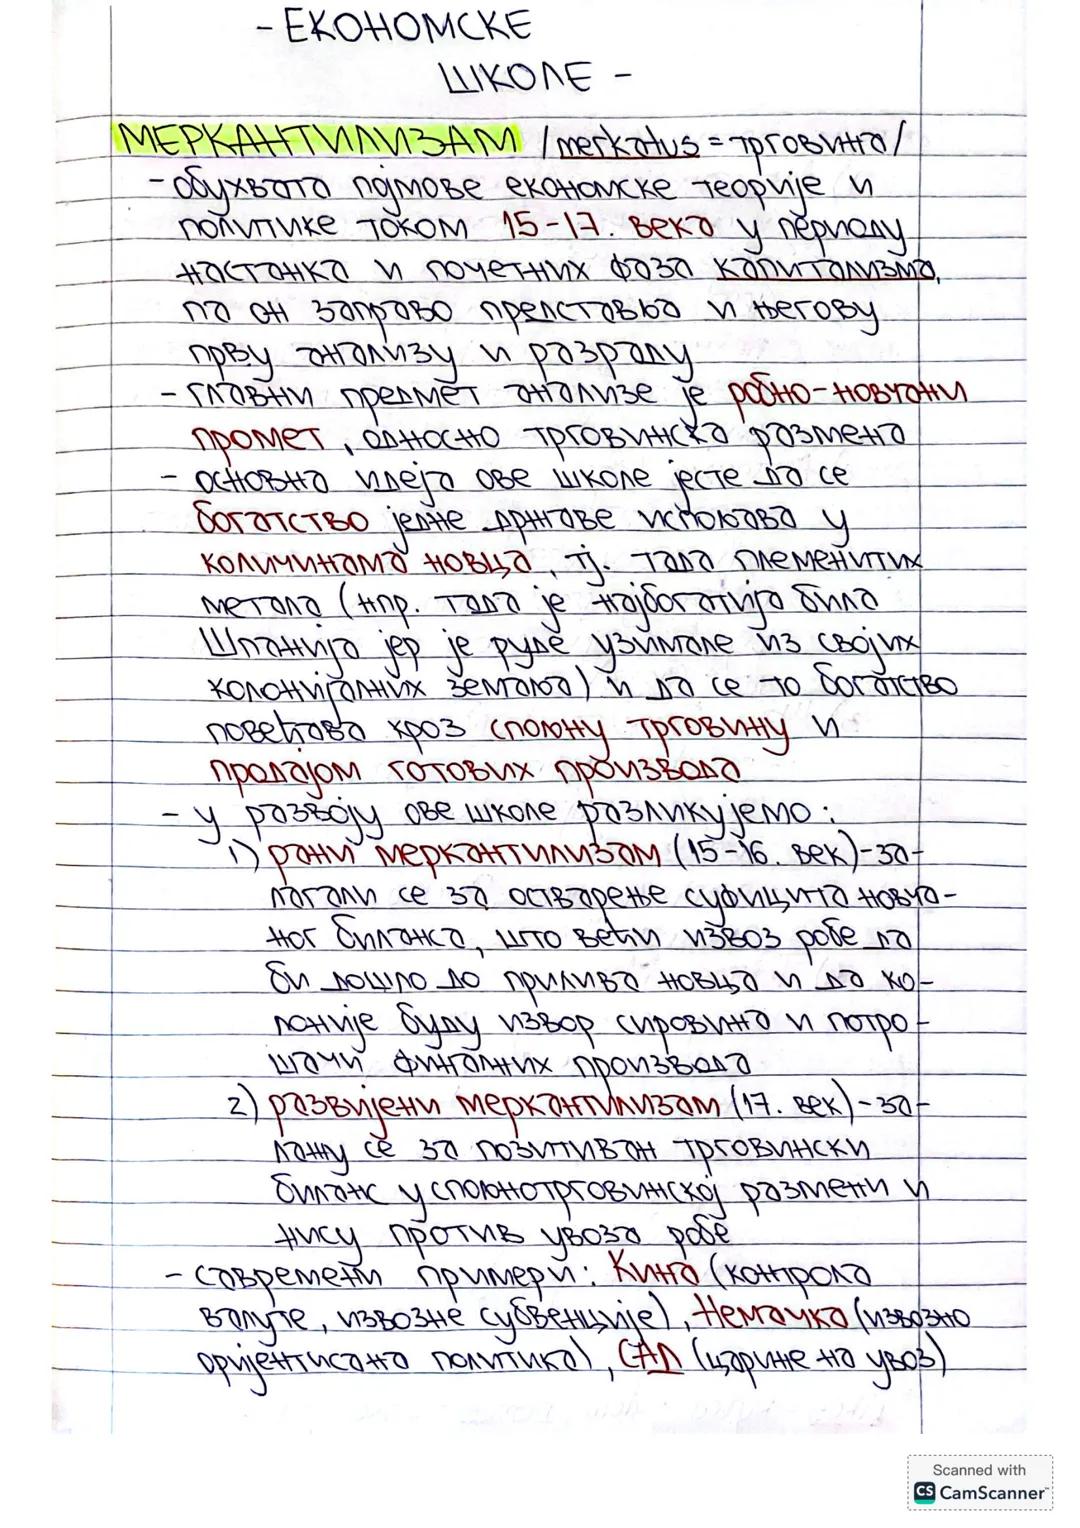 - ЕКОНОМСКЕ
ШКОЛЕ -
МЕРКАНТИЛИЗАМ /merkatus = трговина/
- обухвата појмове економске теорије и
политике током 15-17. века у периоду
настанка и почетних фаза капитализма,
па он заправо представља и његову
прву анализу и разраду
- главни предмет анализе је робно-новчани
промет, односно трговинска размена
- основна идеја ове школе јесте да се
богатство једне државе испољава у
количинама новца, тј. тада племенитих
метала (нпр. тада је најбогатија била
Шпанија јер је руде узимале из својих
колонијалних земаља) и да се то богатство
повећава кроз спољну трговину и
продајом готових производа
- у развоју ове школе разликујемо:
1) рани меркантилизам (15-16. век)-за-
лагали се за остварење суфицита новча-
ног биланса, што већи извоз робе да
би дошло до прилива новца и да ко-
лоније буду извор сировина и потро-
шачи финалних производа
2) развијени меркантилизам (17. век)-за-
лажу се за позитиван трговински
биланс у спољнотрговинској размени и
нису против увоза робе
- савремени примери: Кина (контрола
валуте, извозне субвенције), Немачка (извозно
оријентисана политика), САД (царине на увоз)
Scanned with
CS CamScanner